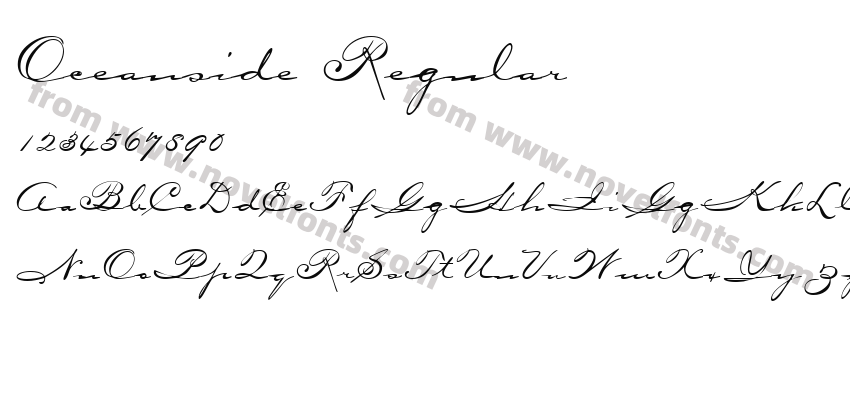 Oceanside Regular
1234567890
AaBbCcDdEeFfGgHhIiGgKkLl
NnOoPpQqRrSsTtUuVvWwXxYyZz
from www.novelfonts.com
from www.novelfonts.com